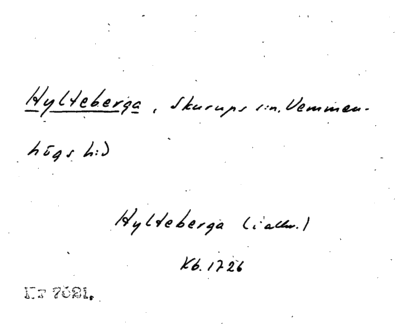 Hylteberga, Skurups sn. Vemmen-
högs hd
Hylteberga (i allm.)
Kb. 1726
Nr 7021.